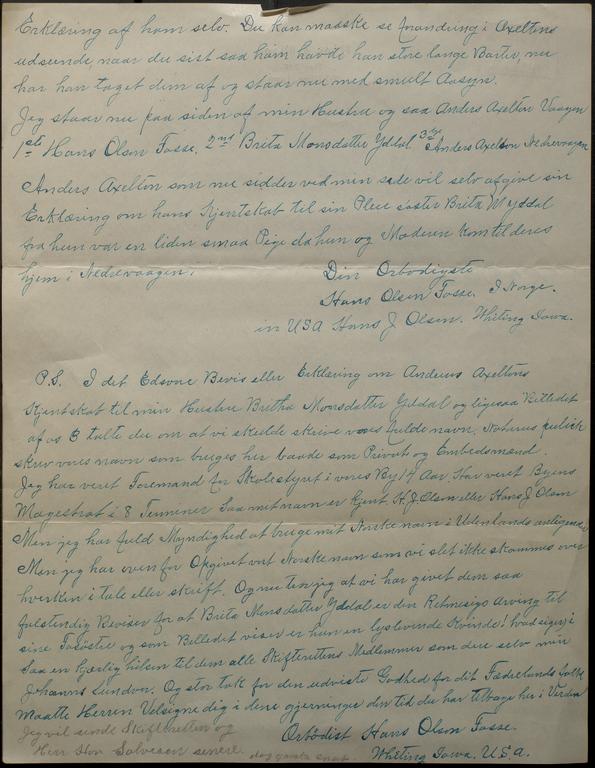 Erklæring af ham selv. Du kan maaske se forandring i Axeltons
udseende, naar du sist saa ham havde han store lange Barter, nu
har han taget dem af og staar nu med smult Aasyn.
Jeg staar nu paa siden af min Hustru og saa Anders Axelton Vaagen
1ste Hans Olsen Fosse, 2nd Brita Monsdatter Yddal 3die Anders Axelton Nedrevaagen
Anders Axelton som nu sidder ved min side vil selv afgive sin
Erklæring om hans Kjentskab til sin Pleie søster Brita M Yddal
fra hun var en liden smaa Pige da hun og Moderen kom til deres
hjem i Nedrevaagen.
Din Ærbødigste
Hans Olsen Fosse. I Norge.
in USA Hans J Olsen. Whiting Iowa.
P.S. I det Edsvorne Bevis eller Erklæring om Anders Axeltons
Kjentskat til min Hustru Britha Monsdatter Yddal og ligesaa Billedet
af os 3 talte du om at vi skulde skrive vores fulde navn. Notarius publick
skrev vores navn som bruges her baade som Privat og Embedsmand.
Jeg har veret Foremand for Skolestyret i vores By 17 Aar. Har veret Byens
Magestrat i 8 Terminer Saa mit navn er kjent H.J. Olsen eller Hans J Olsen
Men jeg har fuld Myndighed at bruge mit Norske navn i Udenlands anligender
Men jeg har oven for Opgivet vort Norske navn som vi slet ikke skammes over
hverken i tale eller skrift. Og nu tror jeg at vi har givet dem saa
fulstendig Beviser for at Brita Monsdatter Yddal er den Retmesige Arving til
sine Søstre og som Billedet viser er hun en lyslevende Kvinde! hvad siger i
Saa en kjærlig hilsen til dem alle Skifterettens Medlemmer som dere selv min
Johannes Lundvor. Og stor tak for den udviste Godhed for dit Fædrelands folk
Maatte Herren Velsigne dig i dine gjerninger din tid du har tilbage her i Verden
Jeg vil sende Skifteretten og
Ærbødist Hans Olsen Fosse.
Herr Hov Salvesen senere
Whiting Iowa, U.S.A.